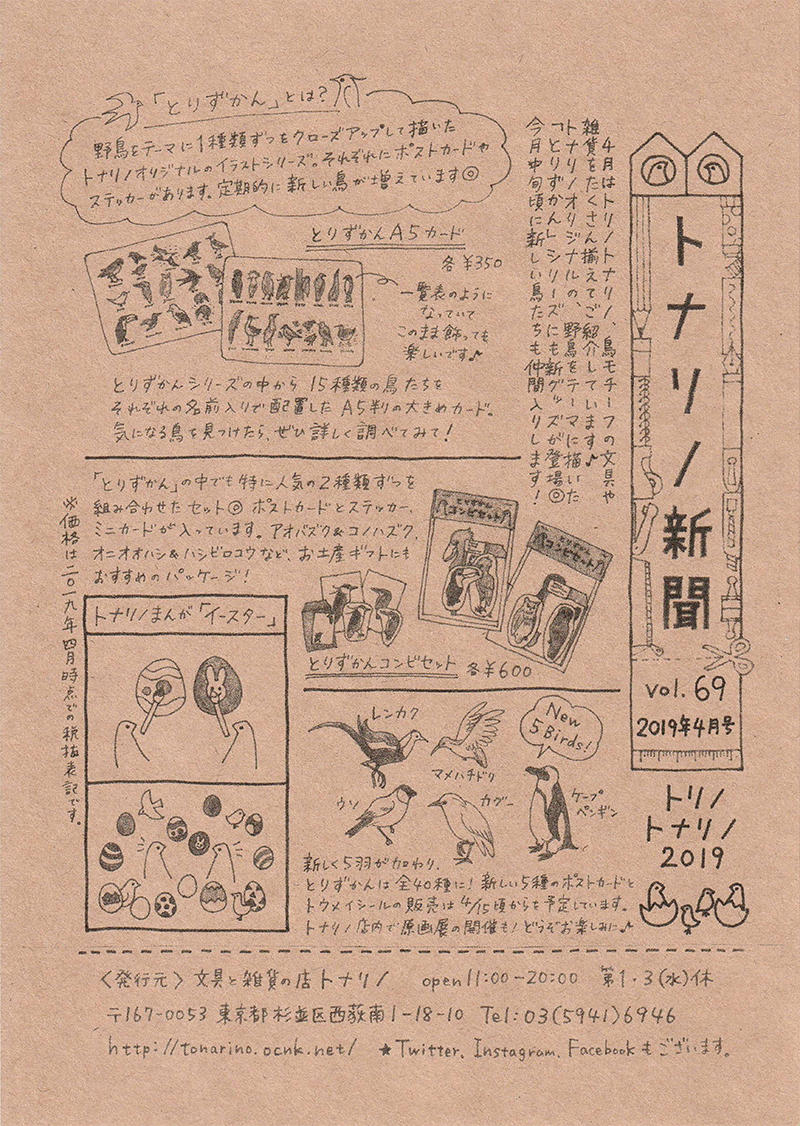 トナリノ新聞
vol. 69
2019年4月号
トリノ
トナリノ
2019
4月はトリノトナリノ、鳥モチーフの文具や
雑貨をたくさん揃えてご紹介しています♪
トナリノオリジナルの、野鳥をテーマに描いた
「とりずかん」シリーズにも新グッズが登場◎
今月中旬頃に新しい鳥たちも仲間入りします！
「とりずかん」とは？
野鳥をテーマに1種類ずつをクローズアップして描いた
トナリノオリジナルのイラストシリーズ。それぞれにポストカードや
ステッカーがあります。定期的に新しい鳥が増えています◎
とりずかんA5カード
各¥350
一覧表のように
なっていて
このまま飾っても
楽しいです♪
とりずかんシリーズの中から 15種類の鳥たちを
それぞれの名前入りで配置した A5判の大きめカード。
気になる鳥を見つけたら、ぜひ詳しく調べてみて！
「とりずかん」の中でも特に人気の2種類ずつを
組み合わせたセット◎ ポストカードとステッカー、
ミニカードが入っています。アオバズク&コノハズク、
オニオオハシ&ハシビロコウなど、お土産ギフトにも
おすすめのパッケージ！
とりずかん
コンビセット
とりずかん
コンビセット
とりずかんコンビセット 各¥600
※価格は二〇一九年四月時点での税抜表記です。
トナリノまんが「イースター」
New
5 Birds!
レンカク
マメハチドリ
ウソ
カグー
ケープ
ペンギン
新しく5羽が加わり、
とりずかんは全40種に！新しい5種のポストカードと
トウメイシールの販売は4/15頃からを予定しています。
トナリノ店内で原画展の開催も！どうぞお楽しみに♪
〈発行元〉文具と雑貨の店トナリノ open 11:00-20:00 第1・3(水)休
〒167-0053 東京都杉並区西荻南1-18-10 Tel:03(5941)6946
http://tonarino.ocnk.net/ ★Twitter、Instagram、Facebookもございます。